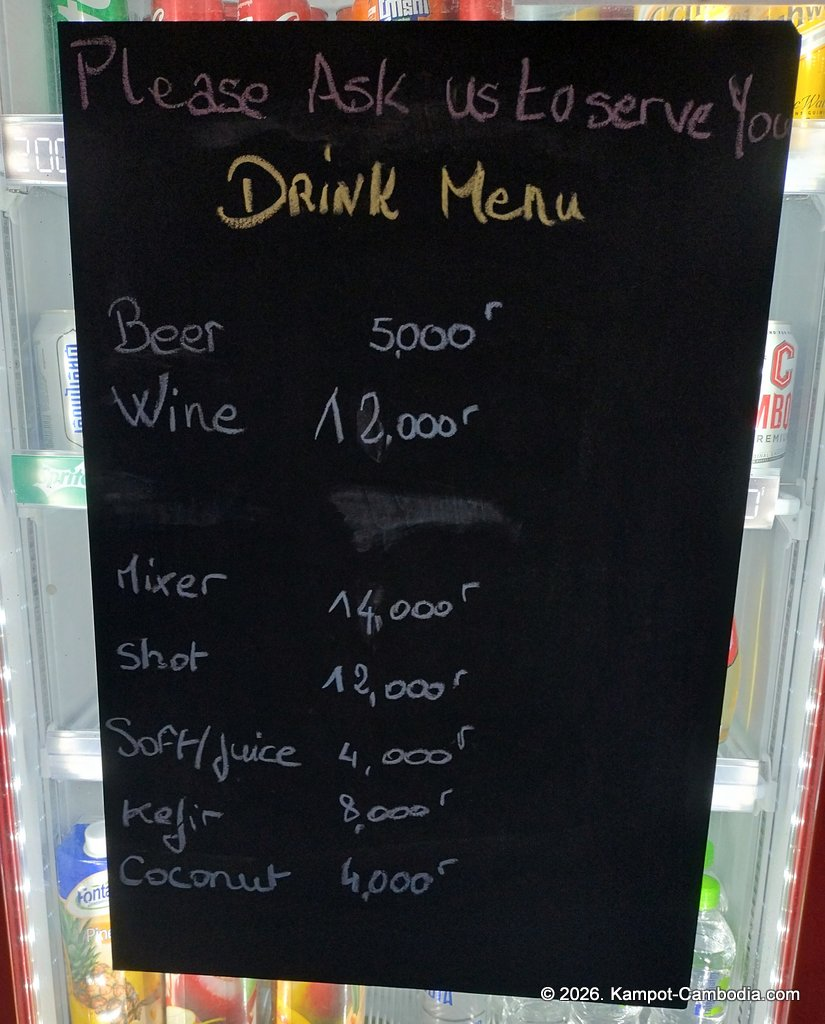 Please Ask us to serve You
Drink Menu
Beer 5,000r
Wine 12,000r
Mixer 14,000r
Shot 12,000r
Soft/juice 4,000r
Kefir 8,000r
Coconut 4,000r
Sprite
© 2026. Kampot-Cambodia.com